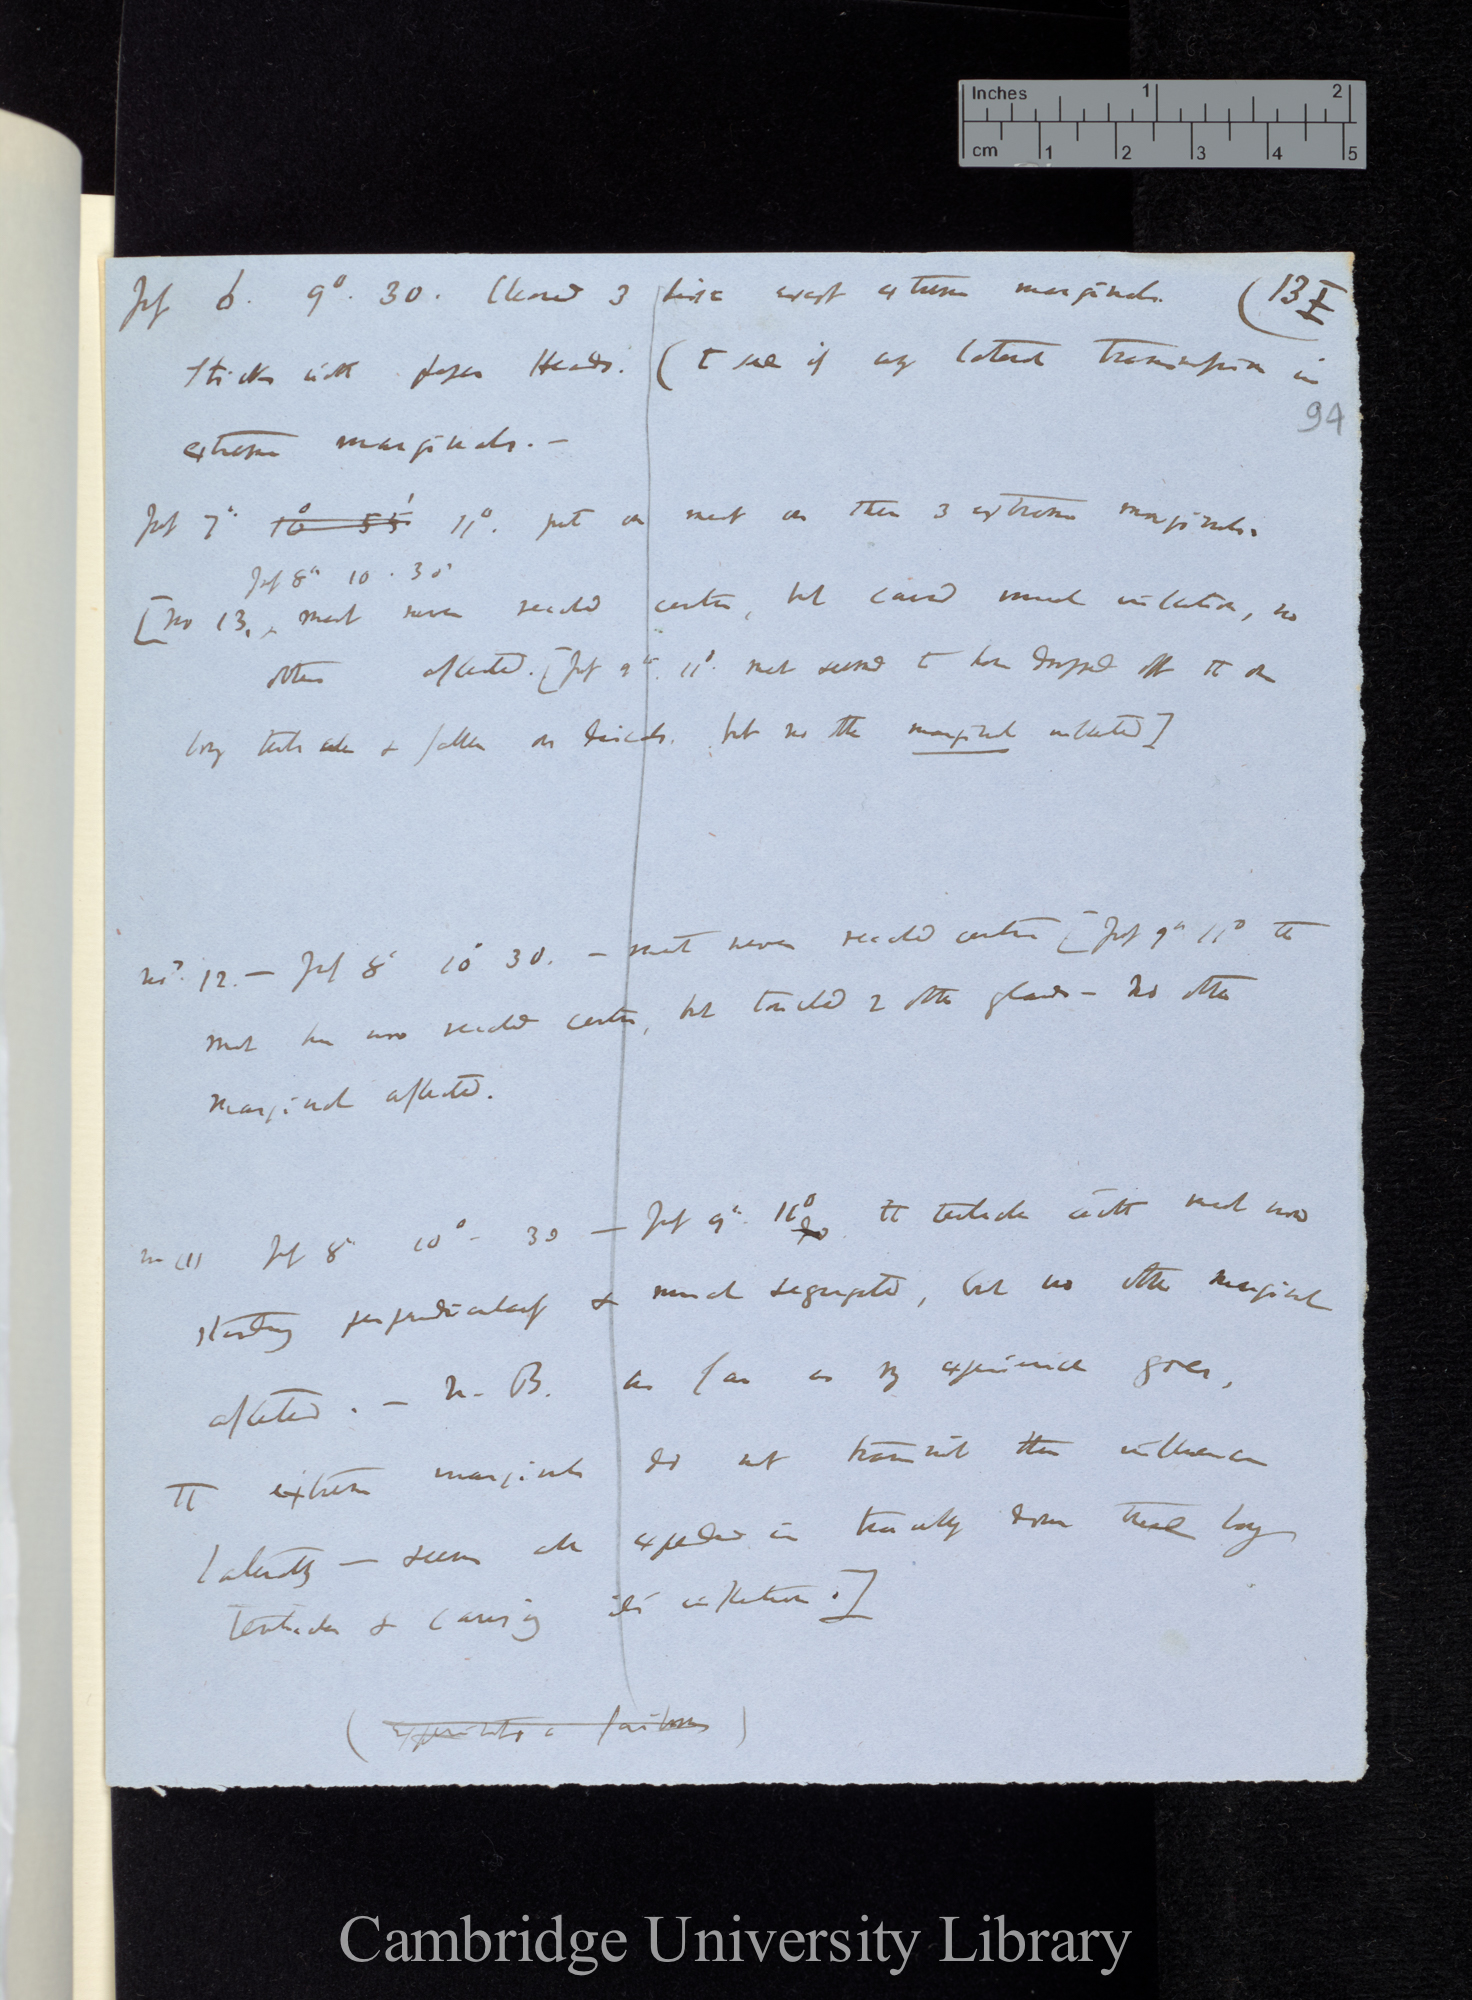 Inches 1 2
cm 1 2 3 4 5
6. 9°. 30. 3 except extreme marginals. (13
Sticks with Heads. (to see if any lateral transmission in
94
extreme marginals. —
7th 10° 55' 11°. put on meat on then 3 extreme marginals.
8th 10. 30'
[No 13, meat never reached centre, but caused much inflection, no
others affected. [ 9th. 11°. meat seemed to have dropped off the one
long tentacle & fallen on discals. but no other marginal inflected]
No. 12. — 8th 10° 30. — meat never reached centre [ 9th 11° the
meat has now reached centre, but touched 2 other glands — No other
marginal affected.
No 11 8th 10° - 30 — 9th. 11° the tentacle with meat now
standing perpendicularly & much segregated, but no other marginal
affected. — N. B. As far as my experience goes,
The extreme marginals do not transmit their influence
laterally — seems all expended in travelling down these long
Tentacles & causing its inflection.]